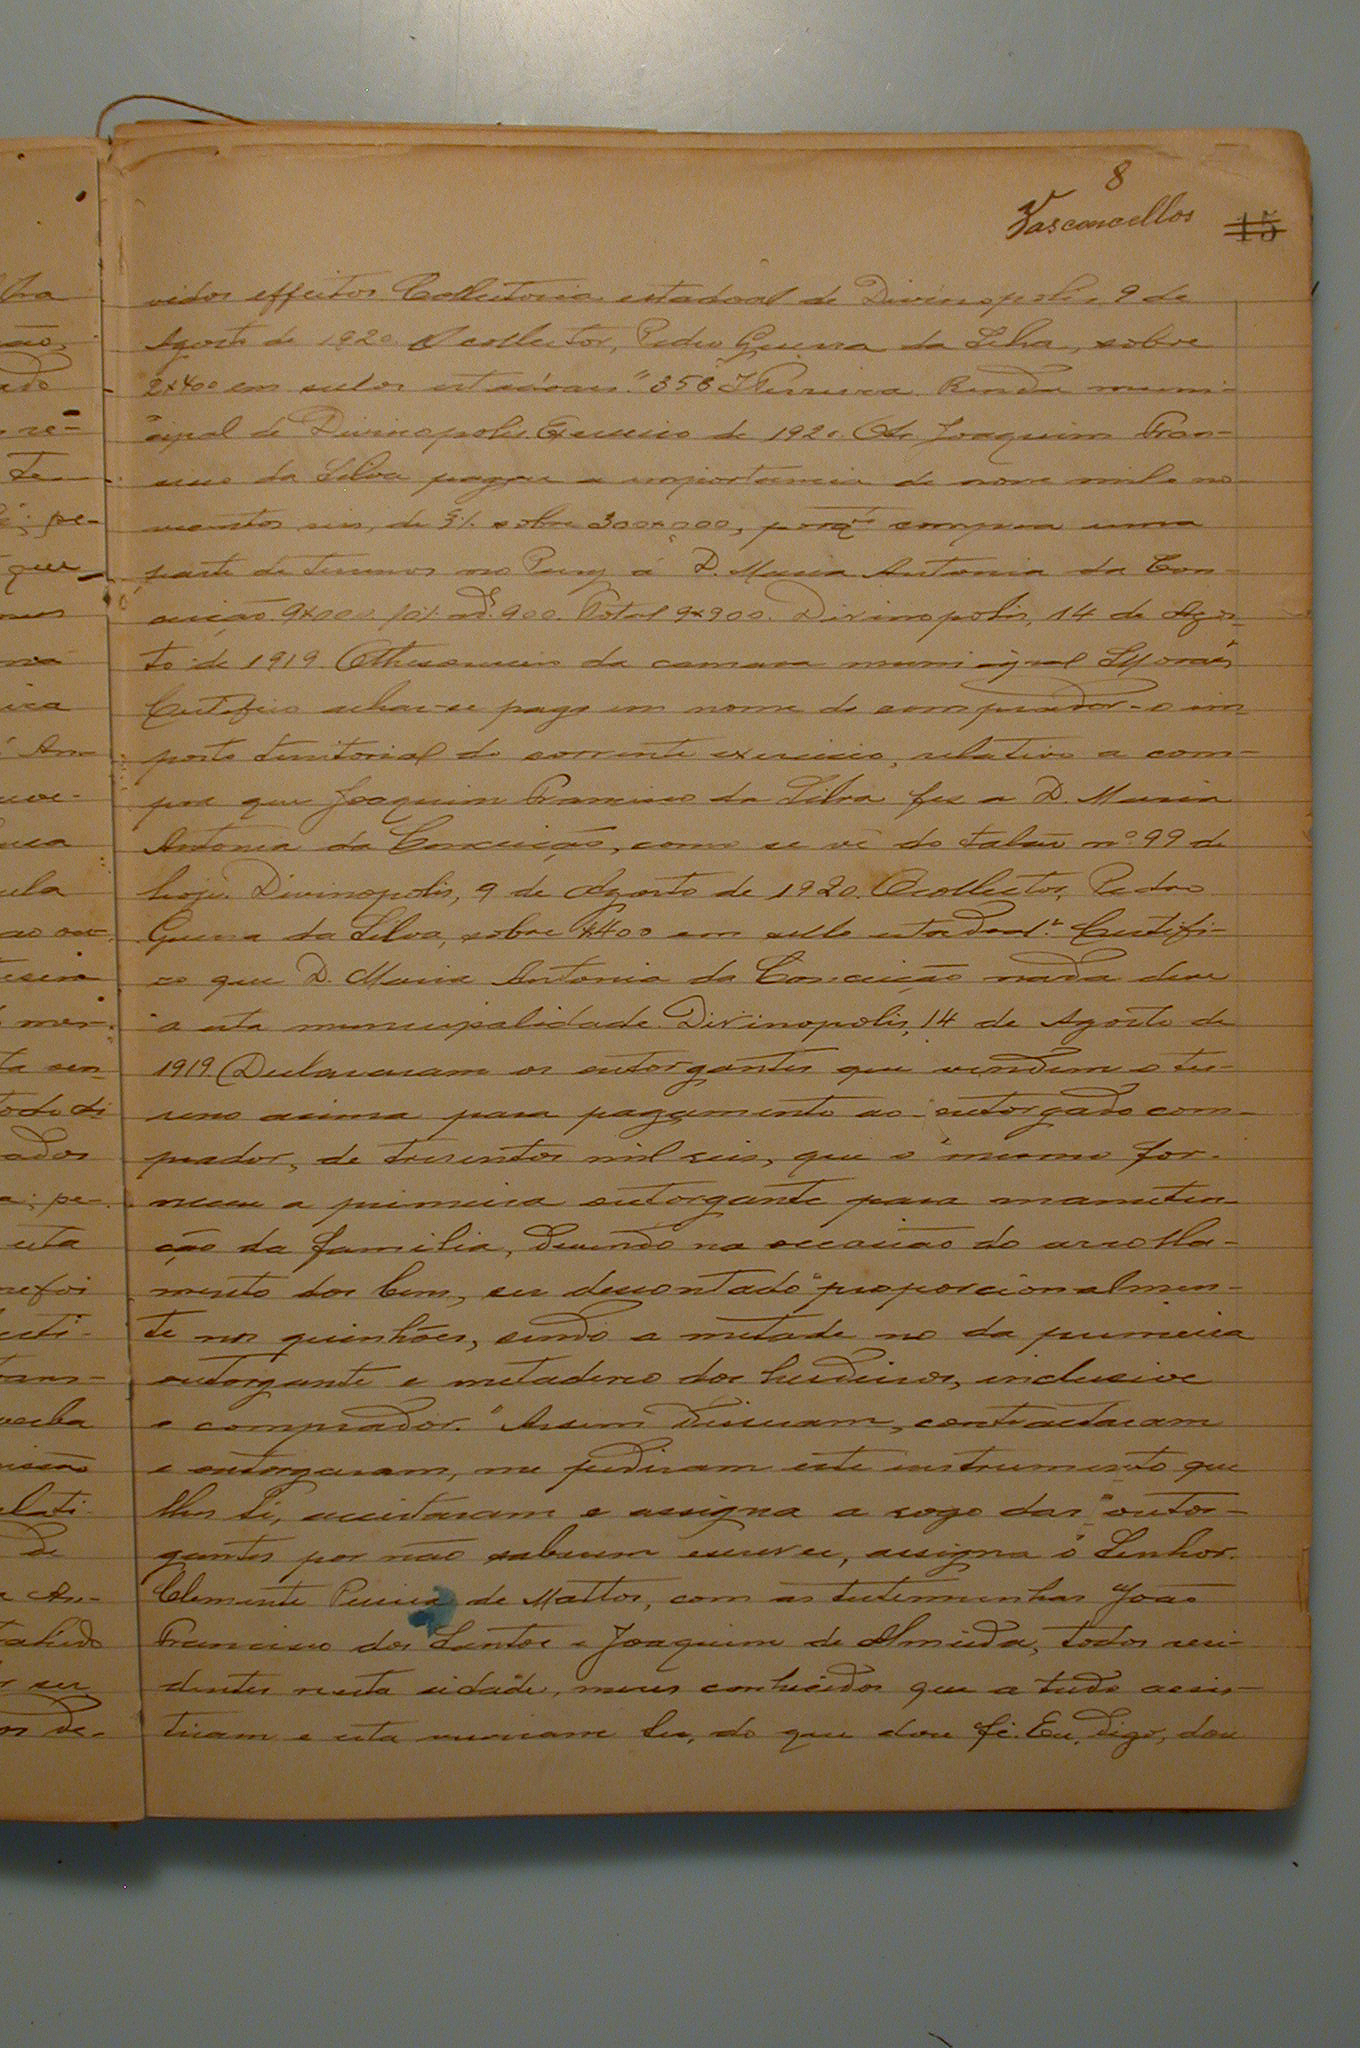 8
Vasconcellos
15
vidos effeitos. Collectoria estadoal de Divinopolis, 9 de
Agosto de 1920. O collector, Pedro Guerra da Silva, sobre
2$400 em sellos estadoaes." 356 Ferreira. Renda muni-
cipal de Divinopolis. Exercicio de 1920. O Sr. Joaquim Fran-
cisco da Silva pagou a importancia de nove mil e no-
vecentos reis, de 3% sobre 300$000, porqe compra uma
parte de terrenos no á D. Maria Antonia da Con-
ceição. 9$000. 10% ad. 900. Total 9$900. Divinopolis, 14 de Agos-
to de 1919. O thesoureiro da camara municipal Moraes
Certifico achar-se pago em nome do comprador o im-
posto territorial do corrente exercicio, relativo a com-
pra que Joaquim Francisco da Silva fez a D. Maria
Antonia da Conceição, como se vê do talão nº 99 de
hoje. Divinopolis, 9 de Agosto de 1920. O collector, Pedro
Guerra da Silva, sobre $400 em sello estadoal." Certifi-
co que D. Maria Antonia da Conceição nada deve
a esta municipalidade. Divinopolis, 14 de Agosto de
1919. Declararam os outorgantes que vendem o ter-
reno acima para pagamento ao outorgado com-
prador, de tresentos mil reis, que o mesmo for-
neceu a primeira outorgante para manuten-
ção da familia, devendo na occasião do arrolla-
mento dos bens, ser descontado proporcionalmen-
te nos quinhões, sendo a metade no da primeira
outorgante e metade no dos herdeiros, inclusive
o comprador. Assim disseram, contractaram
e outorgaram, me pediram este instrumento que
lhes li, acceitaram e assigna a rogo das outor-
gantes por não saberem escrever, assigna o Senhor
Clemente Pereira de Mattos, com as testemunhas João
Francisco dos Santos e Joaquim de Almeida, todos resi-
dentes nesta cidade, meus conhecidos que a tudo assis-
tiram e esta ouviram ler, do que dou fé. Eu, digo, dou